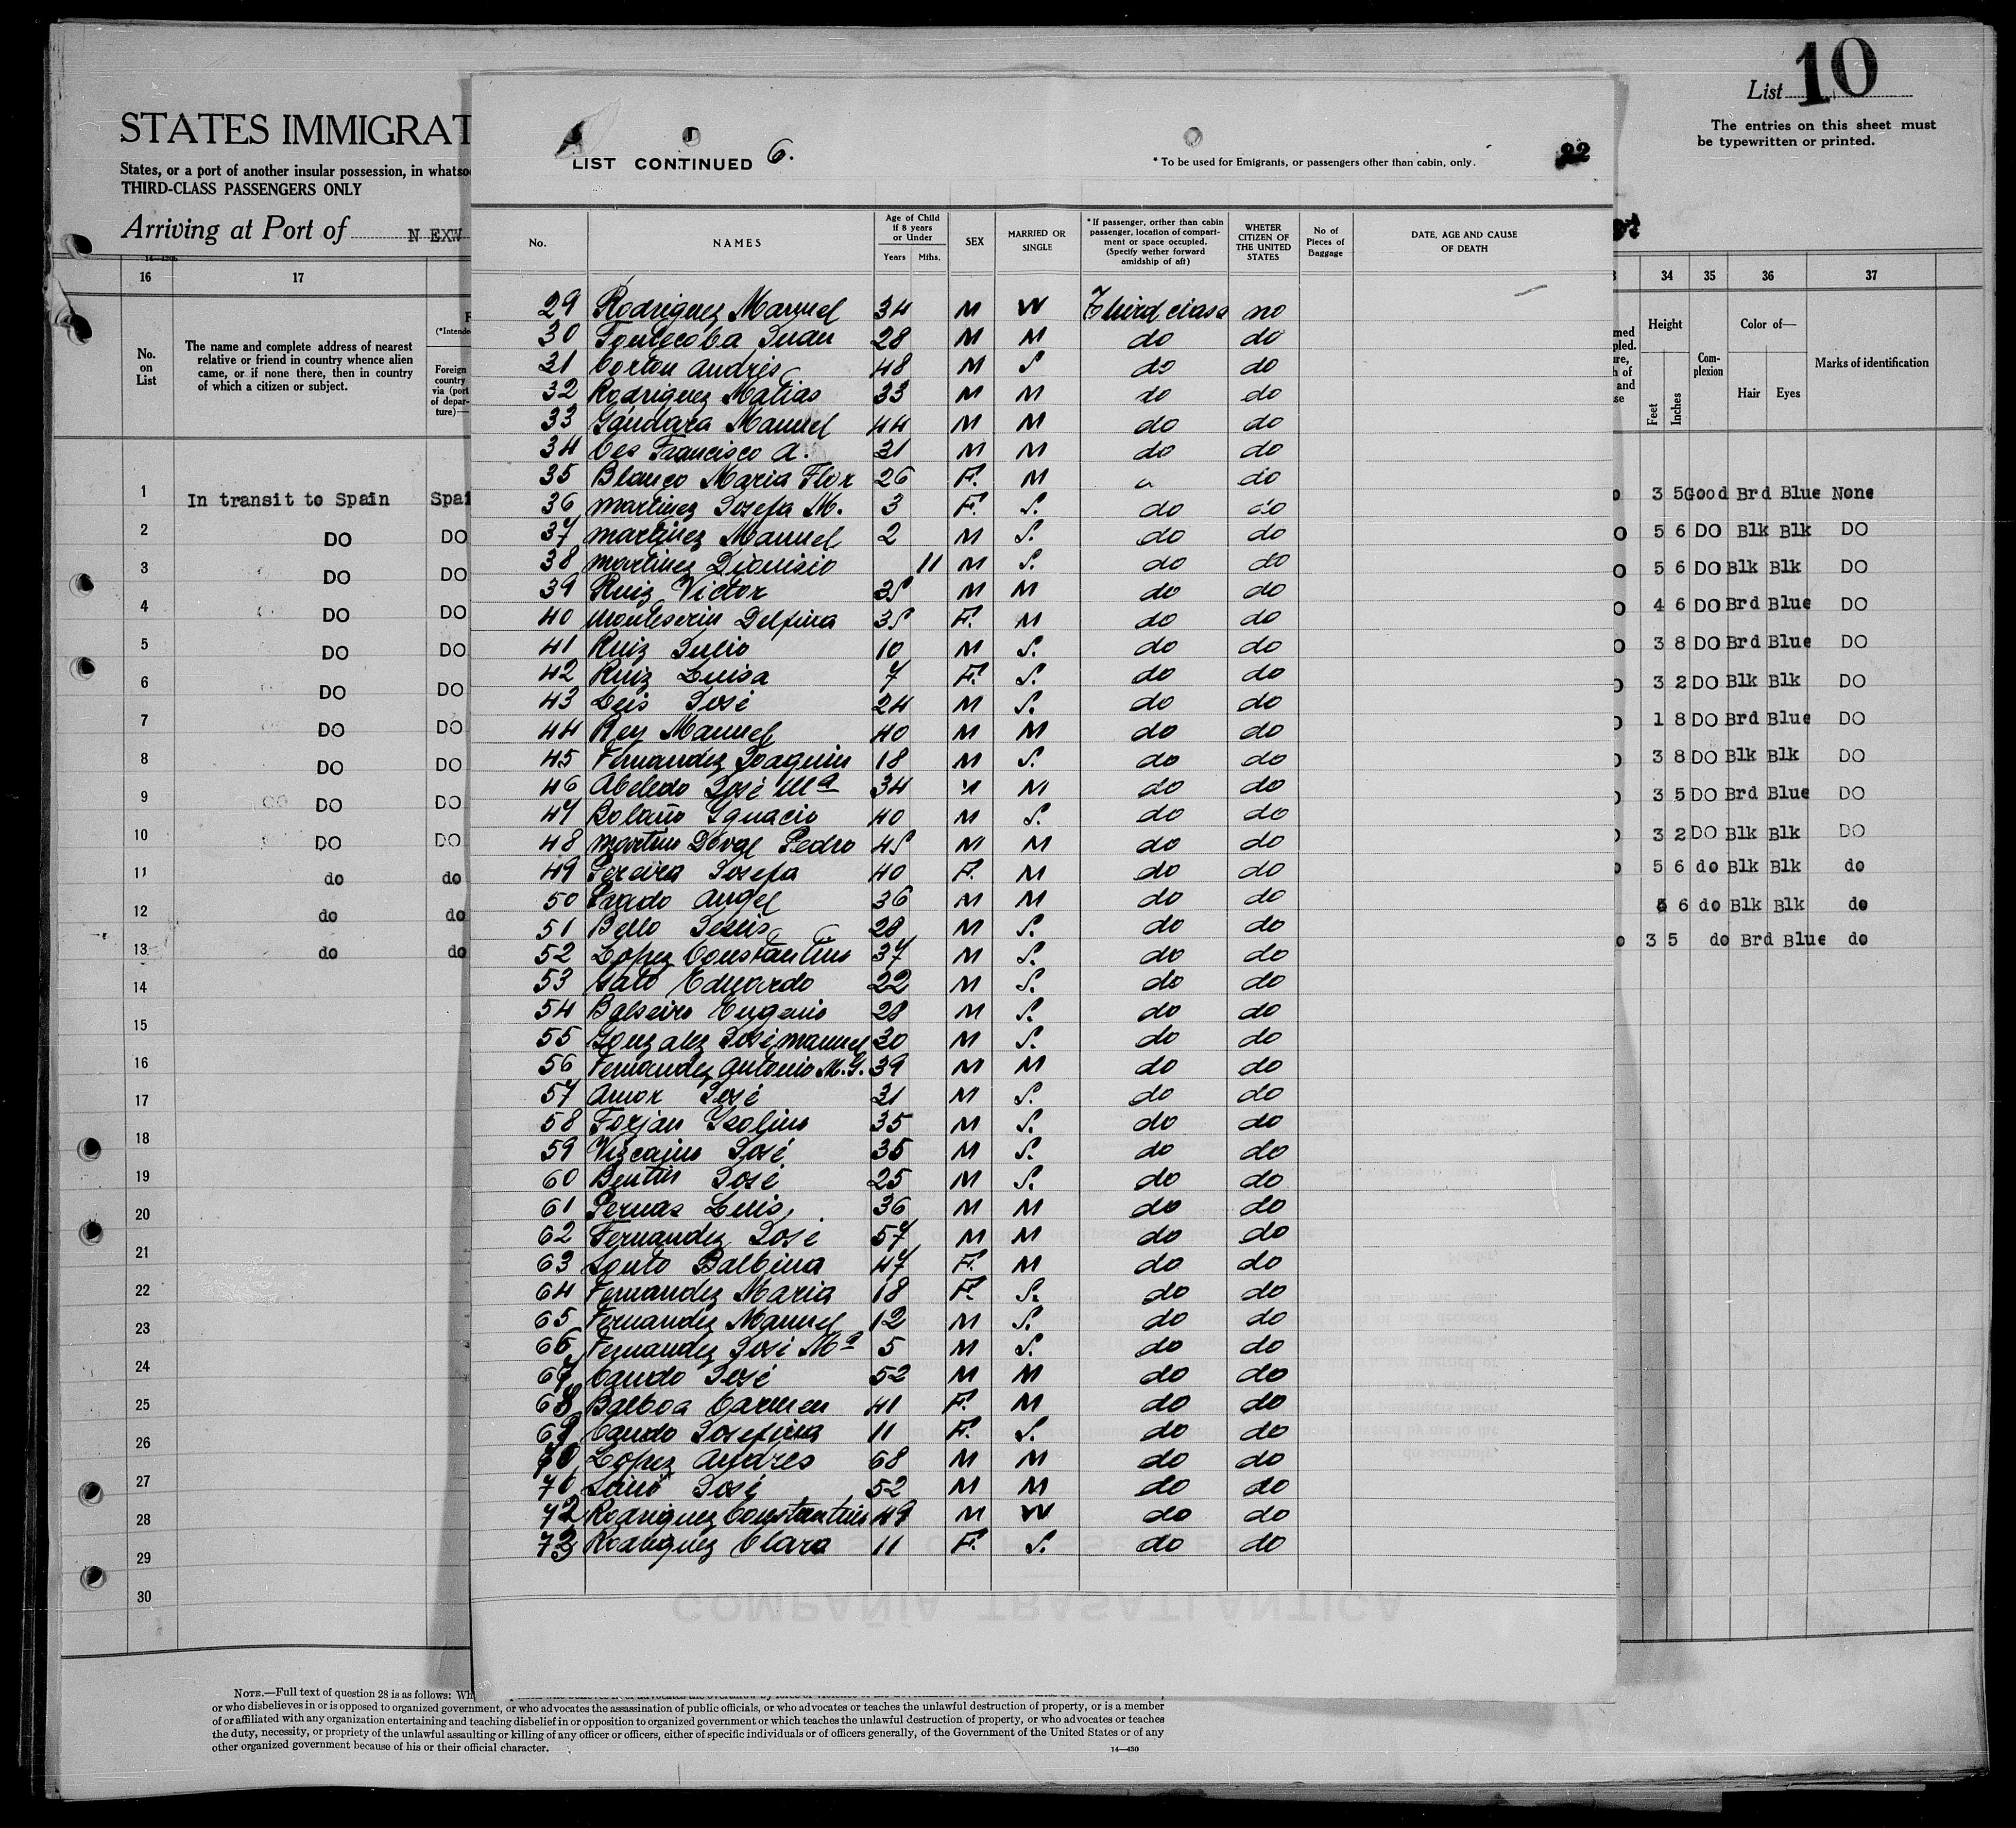 List 10
The entries on this sheet must
be typewritten or printed.
STATES IMMIGRAT
States, or a port of another insular possession, in whatso
THIRD-CLASS PASSENGERS ONLY
Arriving at Port of N EXW
LIST CONTINUED 6.
* To be used for Emigrants, or passengers other than cabin, only.
22
No.
NAMES
Age of Child
if 8 years
or Under
Years Mths.
SEX
MARRIED OR
SINGLE
*If passenger, orther than cabin
passenger, location of compart-
ment or space occupied.
(Specify wether forward
amidship of aft)
WHETER
CITIZEN OF
THE UNITED
STATES
No of
Pieces of
Baggage
DATE, AGE AND CAUSE
OF DEATH
29 Rodriguez Manuel 34 M W Third class no
30 Fontecoba Juan 28 M M do do
31 Corton Andrés 48 M S do do
32 Rodriguez Matias 33 M M do do
33 Gándara Manuel 44 M M do do
34 Ces Francisco A. 31 M M do do
35 Blanco Maria Flor 26 F. M do
36 Martinez Josefa M. 3 F. S. do do
37 Martinez Manuel 2 M S. do do
38 Martinez Dionisio 11 M S. do do
39 Ruiz Victor 35 M M do do
40 Monteserin Delfina 35 F. M do do
41 Ruiz Julio 10 M S. do do
42 Ruiz Luisa 7 F. S. do do
43 Leis José 24 M S. do do
44 Rey Manuel 40 M M do do
45 Fernandez Joaquin 18 M S. do do
46 Abeledo José Mª 34 M M do do
47 Bolaño Ygnacio 40 M S. do do
48 Martin Doval Pedro 45 M M do do
49 Pereira Josefa 40 F. M do do
50 Prado Angel 36 M M do do
51 Bello Jesús 28 M S. do do
52 Lopez Constantino 37 M S. do do
53 Gato Eduardo 22 M S. do do
54 Balseiro Eugenio 28 M S. do do
55 Gonzalez José Manuel 30 M S. do do
56 Fernandez Antonio M. G. 39 M M do do
57 Amor José 31 M S. do do
58 Forjan Ysolino 35 M S. do do
59 Vizcaino José 35 M S. do do
60 Bentin José 25 M S. do do
61 Pernas Luis 36 M M do do
62 Fernandez José 57 M M do do
63 Souto Balbina 47 F. M do do
64 Fernandez Maria 18 F. S. do do
65 Fernandez Manuel 12 M S. do do
66 Fernandez José Mª 5 M S. do do
67 Cando José 52 M M do do
68 Balboa Carmen 41 F. M do do
69 Cando Josefina 11 F. S. do do
70 Lopez Andres 68 M M do do
71 José 52 M M do do
72 Rodriguez Constantino 49 M W do do
73 Rodriguez Clara 11 F. S. do do
COMPAÑÍA TRASATLANTICA
16 17
No.
on
List
The name and complete address of nearest
relative or friend in country whence alien
came, or if none there, then in country
of which a citizen or subject.
(*Intende
Foreign
country
via (port
of depar-
ture)—
1 In transit to Spain Spai
2 DO DO
3 DO DO
4 DO DO
5 DO DO
6 DO DO
7 DO DO
8 DO DO
9 DO DO
10 DO DO
11 do do
12 do do
13 do do
14
15
16
17
18
19
20
21
22
23
24
25
26
27
28
29
30
34 35 36 37
Height
Feet
Inches
Com-
plexion
Color of—
Hair Eyes
Marks of identification
3 5 Good Brd Blue None
5 6 DO Blk Blk DO
5 6 DO Blk Blk DO
4 6 DO Brd Blue DO
3 8 DO Brd Blue DO
3 2 DO Blk Blk DO
1 8 DO Brd Blue DO
3 8 DO Blk Blk DO
3 5 DO Brd Blue DO
3 2 DO Blk Blk DO
5 6 do Blk Blk do
5 6 do Blk Blk do
3 5 do Brd Blue do
NOTE.—Full text of question 28 is as follows: Wh
or who disbelieves in or is opposed to organized government, or who advocates the assassination of public officials, or who advocates or teaches the unlawful destruction of property, or is a member
of or affiliated with any organization entertaining and teaching disbelief in or opposition to organized government or which teaches the unlawful destruction of property, or who advocates or teaches
the duty, necessity, or propriety of the unlawful assaulting or killing of any officer or officers, either of specific individuals or of officers generally, of the Government of the United States or of any
other organized government because of his or their official character.
14—430